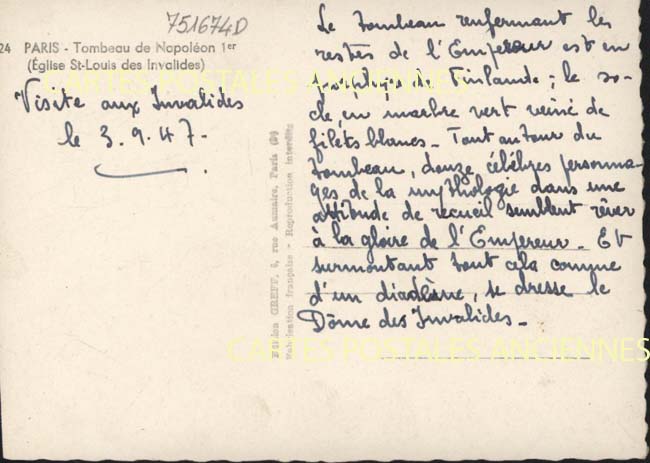 751674D
24 PARIS - Tombeau de Napoléon 1er
(Église St-Louis des Invalides)
Visite aux Invalides
le 3.9.47.-
Edition GREFF, 6, rue Aumaire, Paris
Fabrication française - Reproduction interdite
Le tombeau renfermant les
restes de l'Empereur est en
porphyre de Finlande ; le so-
cle, en marbre vert veiné de
filets blancs - Tout autour du
tombeau, douze célèbres personna-
ges de la mythologie dans une
attitude de recueil semblent rêver
à la gloire de l'Empereur - Et
surmontant tout cela comme
d'un diadème, se dresse le
Dôme des Invalides -
CARTES POSTALES ANCIENNES
CARTES POSTALES ANCIENNES